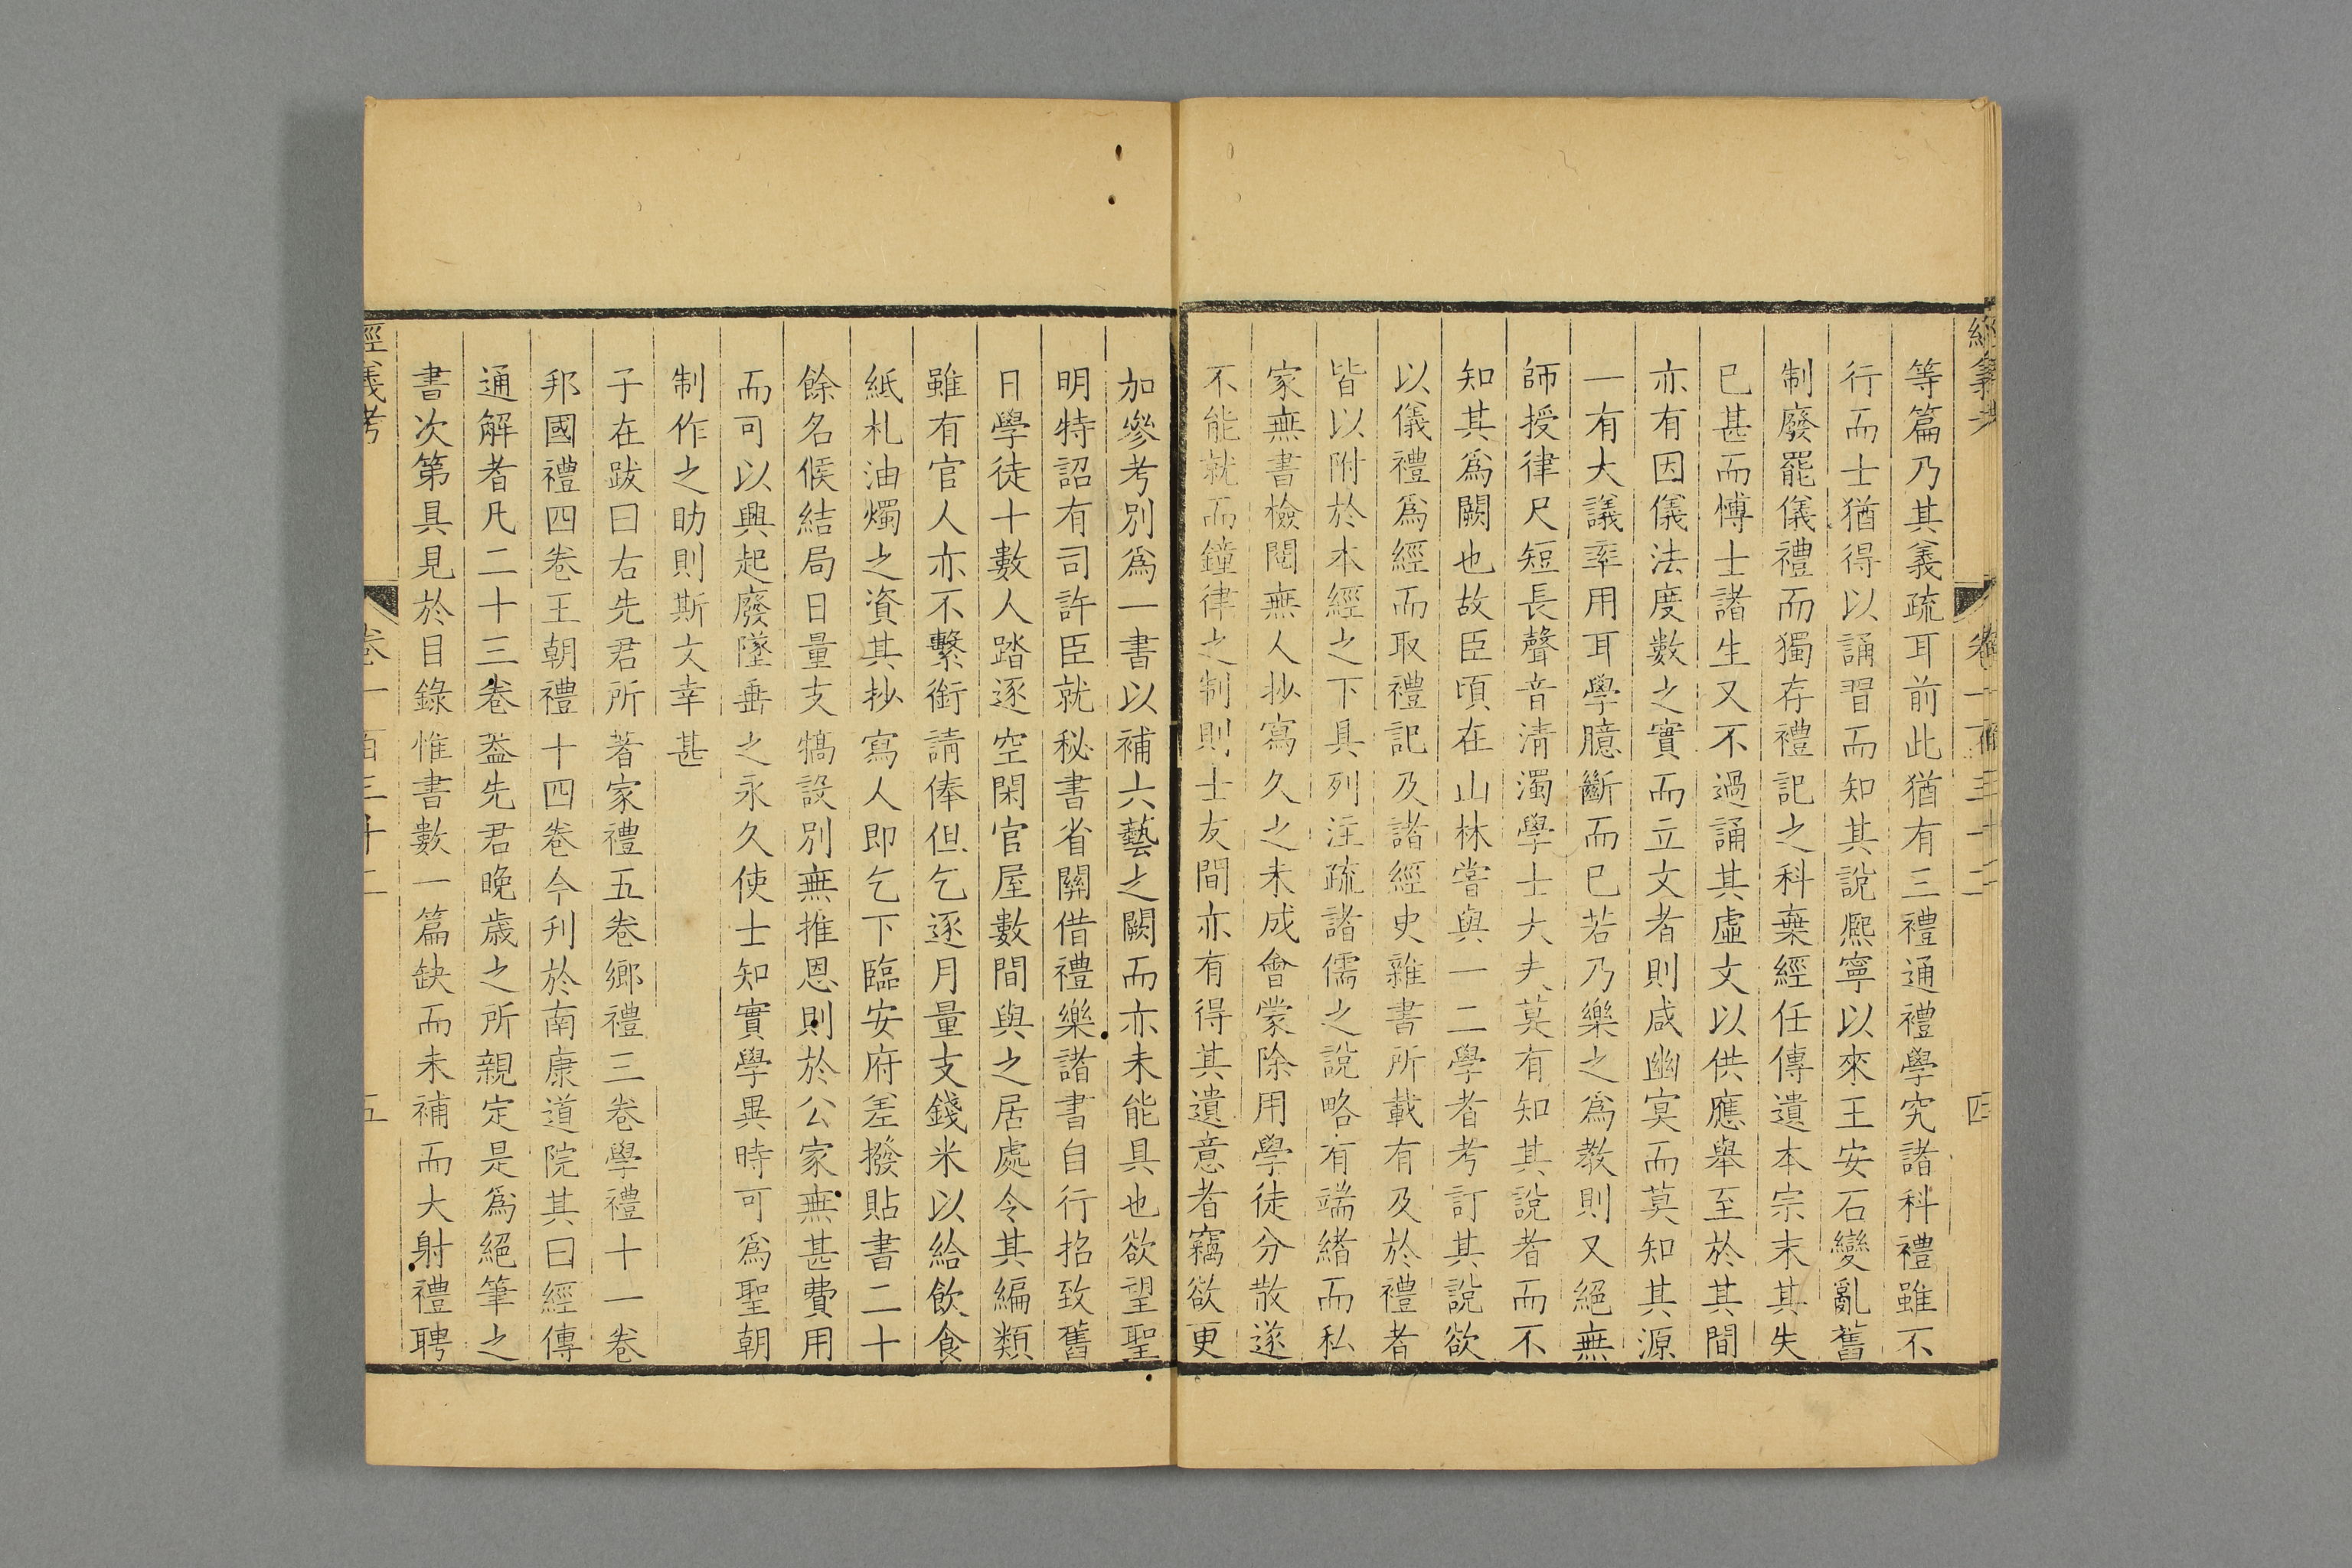 經義考 卷一百三十二 四
等篇乃其義疏耳前此猶有三禮通禮學究諸科禮雖不
行而士猶得以誦習而知其說熈寧以來王安石變亂舊
制廢罷儀禮而獨存禮記之科棄經任傳遺本宗末其失
已甚而愽士諸生又不過誦其虛文以供應舉至於其間
亦有因儀法度數之實而立文者則咸幽冥而莫知其源
一有大議率用耳學臆斷而已若乃樂之爲敎則又絕無
師授律尺短長聲音淸濁學士大夫莫有知其說者而不
知其爲闕也故臣頃在山林嘗與一二學者考訂其說欲
以儀禮爲經而取禮記及諸經史雜書所載有及於禮者
皆以附於本經之下具列注疏諸儒之說略有端緖而私
家無書檢閱無人抄寫久之未成會蒙除用學徒分散遂
不能就而鐘律之制則士友間亦有得其遺意者竊欲更
加參考別爲一書以補六藝之闕而亦未能具也欲望聖
明特詔有司許臣就秘書省關借禮樂諸書自行招致舊
日學徒十數人踏逐空閑官屋數間與之居處令其編類
雖有官人亦不繫銜請俸但乞逐月量支錢米以給飮食
紙札油燭之資其抄寫人即乞下臨安府差撥貼書二十
餘名候結局日量支犒設別無推恩則於公家無甚費用
而可以興起廢墜垂之永久使士知實學異時可爲聖朝
制作之助則斯文幸甚
子在跋曰右先君所著家禮五卷鄉禮三卷學禮十一卷
邦國禮四卷王朝禮十四卷今刊於南康道院其曰經傳
通解者凡二十三卷葢先君晚歲之所親定是爲絕筆之
書次第具見於目錄惟書數一篇缺而未補而大射禮聘
經義考 卷一百三十二 五